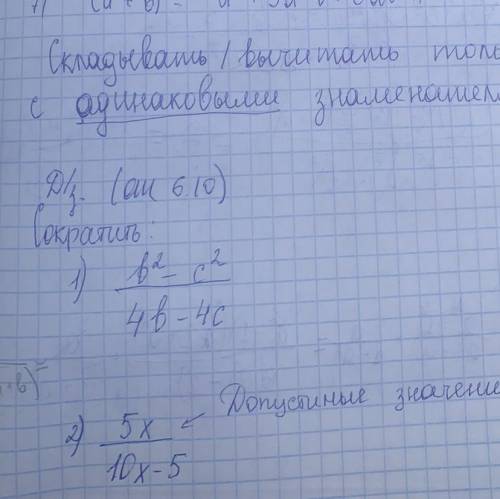 Складывать / вычитать толь
с одинаковыми знаменател
Д/з. (ан 6.10)
Сократить:
1) b² - c²
4b - 4c
2) 5x ← Допустимые значение
10x - 5